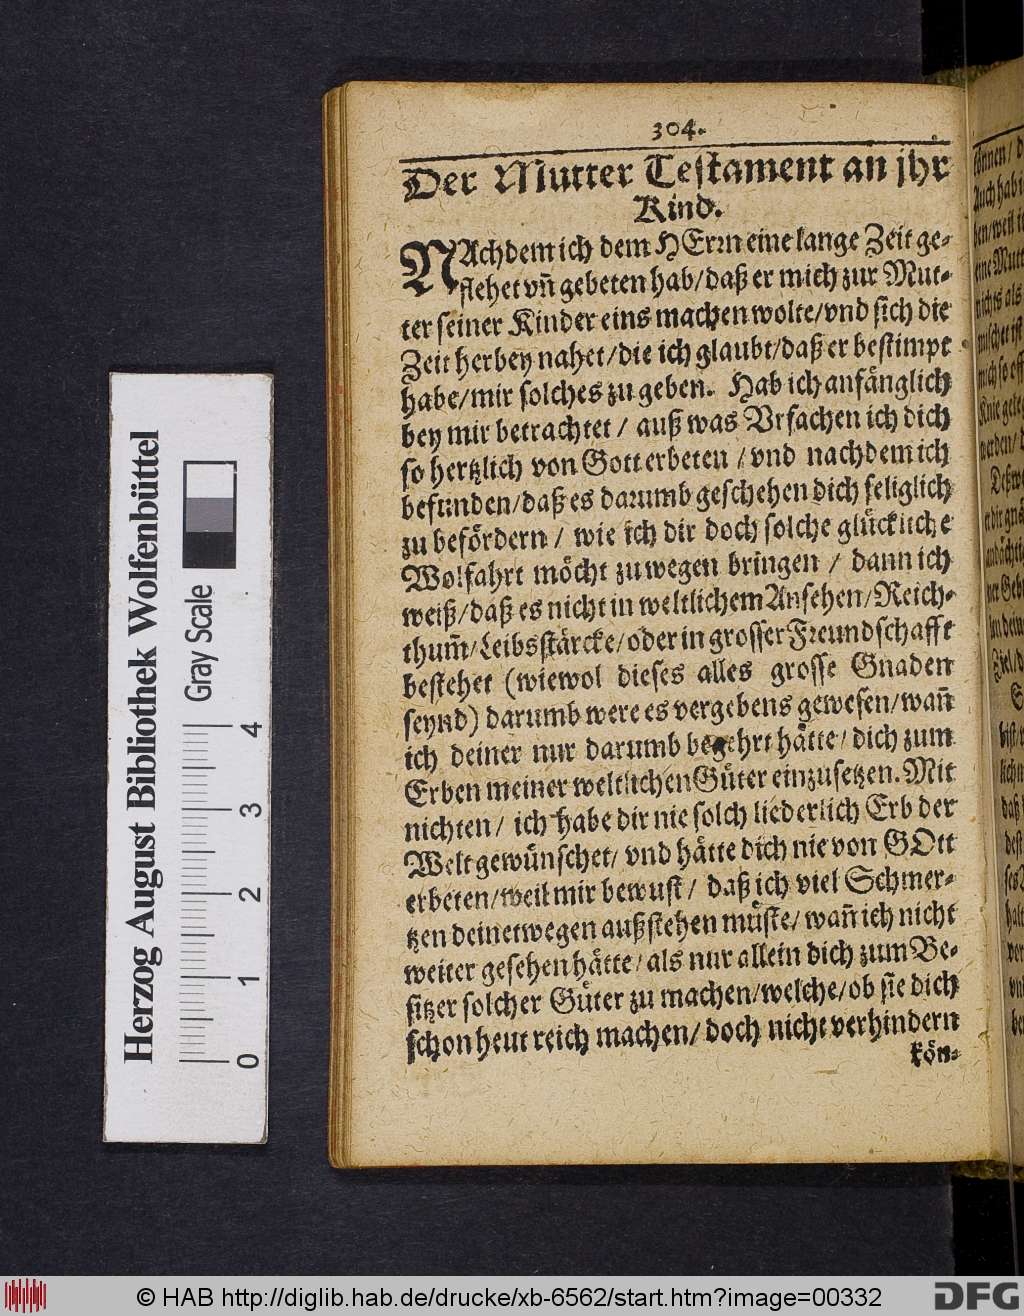 304.
Der Mutter Testament an jhr
Kind.
NAchdem ich dem HErrn eine lange Zeit ge-
flehet vñ gebeten hab/daß er mich zur Mut-
ter seiner Kinder eins machen wolte/vnd sich die
Zeit herbey nahet/die ich glaubt/daß er bestimpt
habe/mir solches zu geben. Hab ich anfänglich
bey mir betrachtet / auß was Vrsachen ich dich
so hertzlich von Gott erbeten / vnd nachdem ich
befunden/daß es darumb geschehen dich seliglich
zu befördern / wie ich dir doch solche glückliche
Wolfahrt möcht zuwegen bringen / dann ich
weiß/daß es nicht in weltlichem Ansehen/Reich-
thum̃/Leibsstärcke/oder in grosser Freundschafft
bestehet (wiewol dieses alles grosse Gnaden
seynd) darumb were es vergebens gewesen/wañ
ich deiner nur darumb begehrt hätte/ dich zum
Erben meiner weltlichen Güter einzusetzen. Mit
nichten / ich habe dir nie solch liederlich Erb der
Welt gewünschet/ vnd hätte dich nie von GOtt
erbeten/weil mir bewust / daß ich viel Schmer-
tzen deinetwegen außstehen müste/ wañ ich nicht
weiter gesehen hätte/ als nur allein dich zum Be-
sitzer solcher Güter zu machen/welche/ob sie dich
schon heut reich machen/ doch nicht verhindern
kön-
Herzog August Bibliothek Wolfenbüttel
Gray Scale
0 1 2 3 4
© HAB http://diglib.hab.de/drucke/xb-6562/start.htm?image=00332
DFG